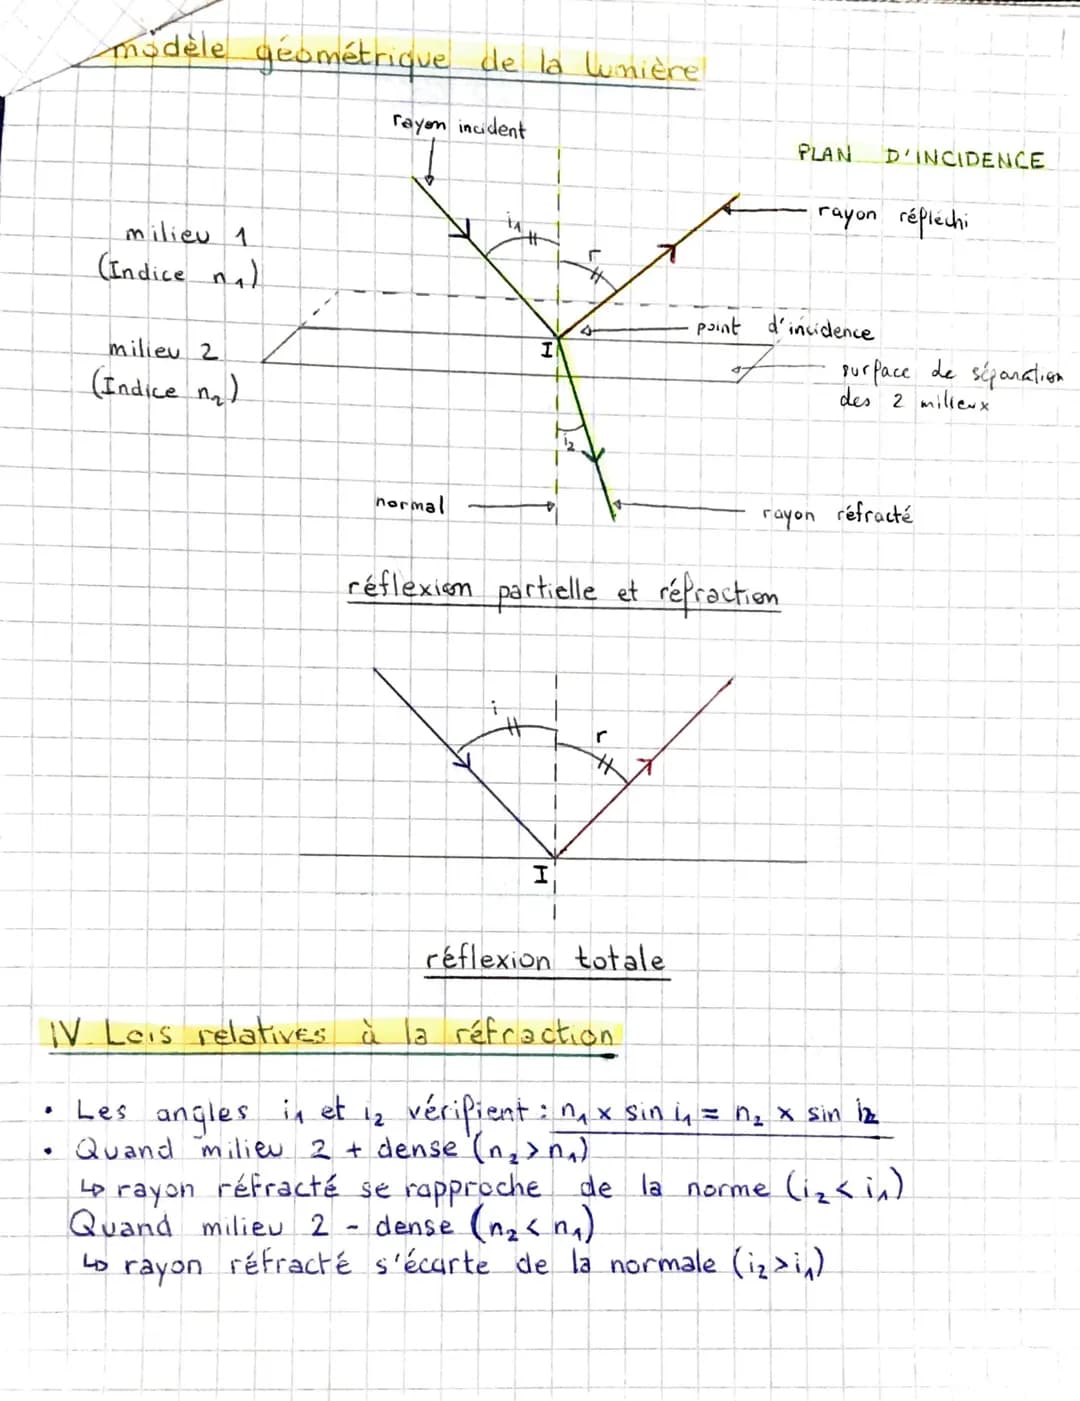 modèle géométrique de la lumière
rayon incident
PLAN D'INCIDENCE
rayon réfléchi
i₁
r
milieu 1
(Indice n₁)
point d'incidence
I
milieu 2
(Indice n₂)
surface de séparation
des 2 milieux
i₂
normal
rayon réfracté
réflexion partielle et réfraction
i
r
I
réflexion totale
IV Lois relatives à la réfraction
• Les angles i₁ et i₂ vérifient : n₁ x sin i₁ = n₂ x sin i₂
• Quand milieu 2 + dense (n₂ > n₁)
↳ rayon réfracté se rapproche de la norme (i₂ < i₁)
Quand milieu 2 - dense (n₂ < n₁)
↳ rayon réfracté s'écarte de la normale (i₂ > i₁)